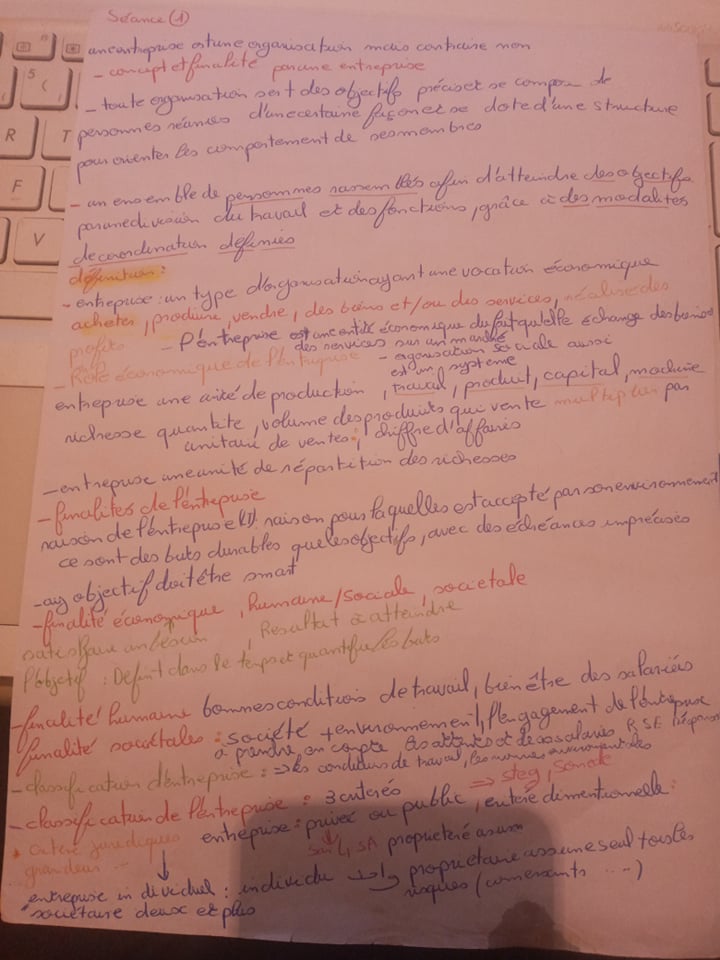 Séance (1)
un entreprise est une organisation mais contraire non
- concept et finalité par une entreprise
- toute organisation sert des objectifs précis et se compose de
personnes réunies d'une certaine façon et se dote d'une structure
pour orienter les comportement de ses membres
- un ensemble de personnes rassemblés afin d'atteindre des objectifs
par une division du travail et des fonctions, grâce à des modalités
de coordination définies
définition:
- entreprise: un type d'organisation ayant une vocation économique
acheter, produire, vendre, des biens et/ou des services, réalise des
profits - l'entreprise est une entité économique du fait qu'elle échange des biens
des services sur un marché
- Rôle économique de l'entreprise - organisation sociale aussi
est un système
entreprise une unité de production, travail, produit, capital, machine
richesse quantité, volume des produits qui vente multiplier par
unitaire de ventes: chiffre d'affaires
- entreprise une unité de répartition des richesses
- finalités de l'entreprise
raison de l'entreprise (1): raison pour laquelles est accepté par son environnement
ce sont des buts durables que les objectifs, avec des échéances imprécises
- objectif doit être smart
- finalité économique, humaine/sociale, societale
satisfaire un besoin, Resultat à atteindre
l'objectif: Définit dans le temps et quantifier les buts
- finalité humaine bonnes conditions de travail, bien être des salariés
finalité sociétales: société + environnement, l'engagement de l'entreprise
à prendre en compte les attentes de ses salariés RSE
- classification d'entreprise: => les conditions de travail, les normes
=> steg, Sonede
- classification de l'entreprise: 3 critères
entreprise: privée ou public, critère dimentionnelle:
critère juridiques
SARL, SA propriété
grandeur ...
entreprise individuel: individu propriétaire assume seul tous les
risques (comersants ....)
sociétaire deux et plus